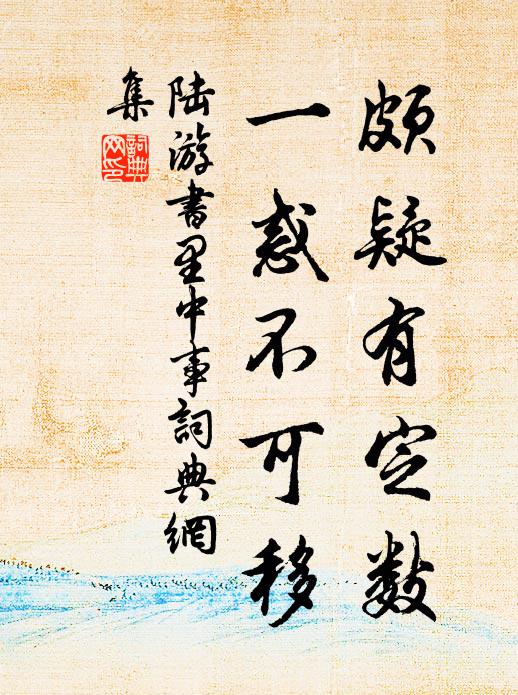 頗疑有定數
一惑不可移
陸游書里中事詞典網
集
詞典網印